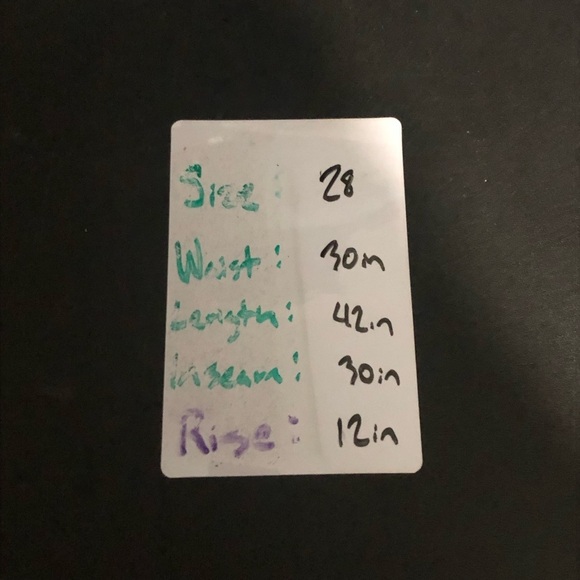 Size: 28
Waist: 30in
Length: 42in
Inseam: 30in
Rise: 12in